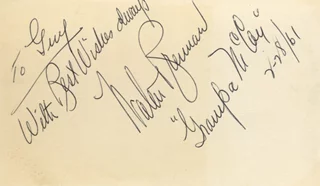 To Guy
With Best Wishes always
Walter Brennan
"Grampa McCoy"
2-28/61